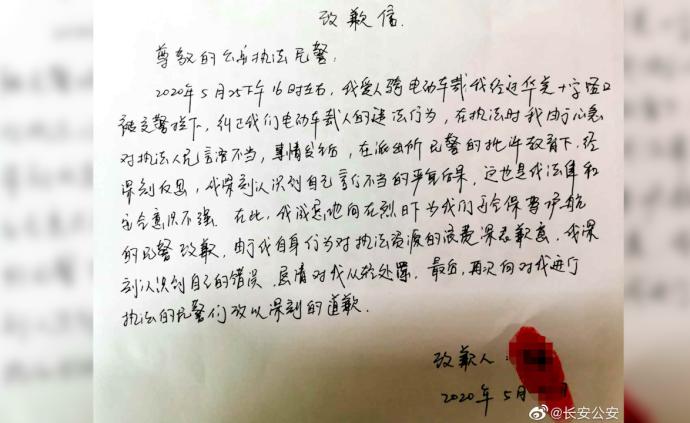 致歉信
尊敬的公安执法民警：
2020年5月25下午16时左右，我爱人骑电动车载我经过华美十字路口
被交警拦下，纠正我们电动车载人的违法行为，在执法时我由于心急
对执法人员言语不当，事情发生后，在派出所民警的批评教育下，经
深刻反思，我深刻认识到自己言行不当的严重后果，这也是我法律和
安全意识不强．在此，我诚恳地向在烈日下为我们安全保驾护航
的民警致歉，由于我自身行为对执法资源的浪费深表歉意．我深
刻认识到自己的错误，恳请对我从轻处罚．最后，再次向对我进行
执法的民警们致以深刻的道歉．
致歉人：
2020年5月
@长安公安